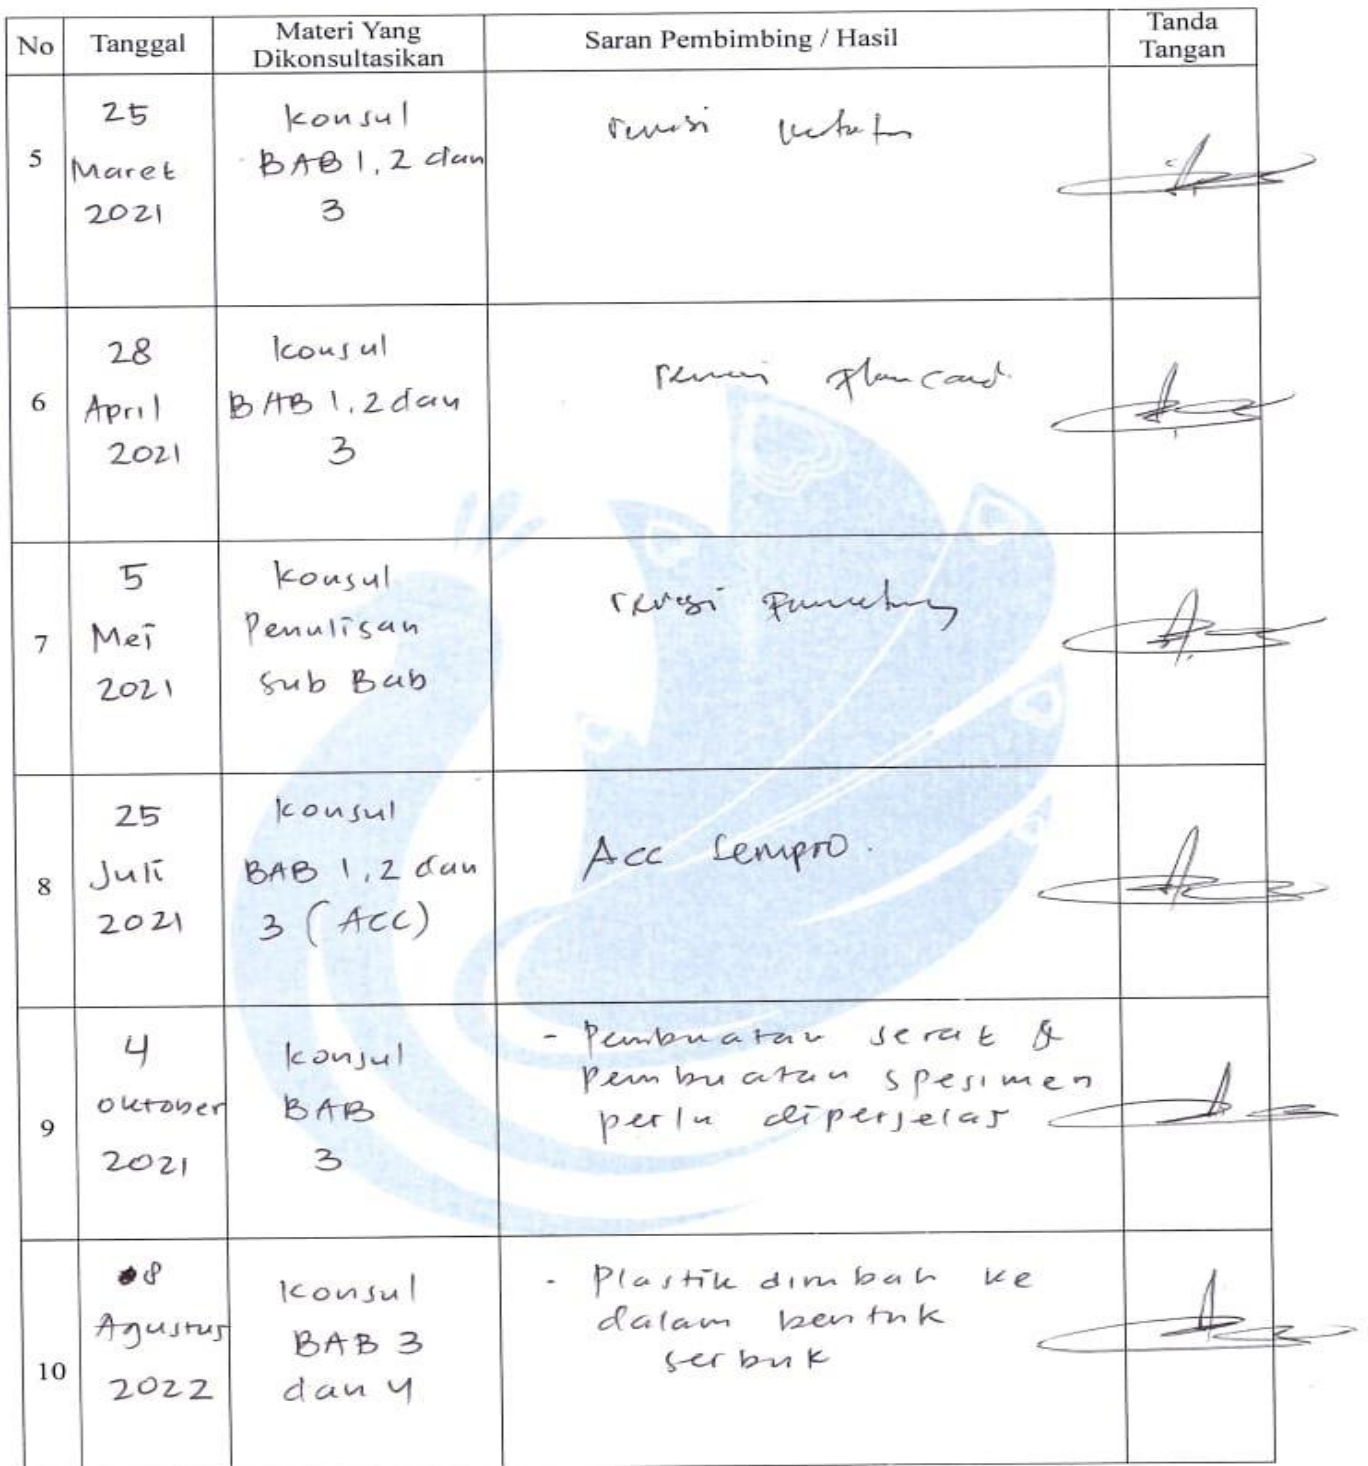 No Tanggal Materi Yang Dikonsultasikan Saran Pembimbing / Hasil Tanda Tangan
5
25
Maret
2021
konsul
BAB 1, 2 dan
3
revisi
6
28
April
2021
konsul
BAB 1, 2 dan
3
revisi
7
5
Mei
2021
Konsul
Penulisan
sub Bab
revisi
8
25
Juli
2021
konsul
BAB 1, 2 dan
3 (ACC)
Acc Sempro.
9
4
oktober
2021
konsul
BAB
3
- Pembuatan serat &
pembuatan spesimen
perlu diperjelas
10
8
Agustus
2022
konsul
BAB 3
dan 4
- Plastik dirubah ke
dalam bentuk
serbuk